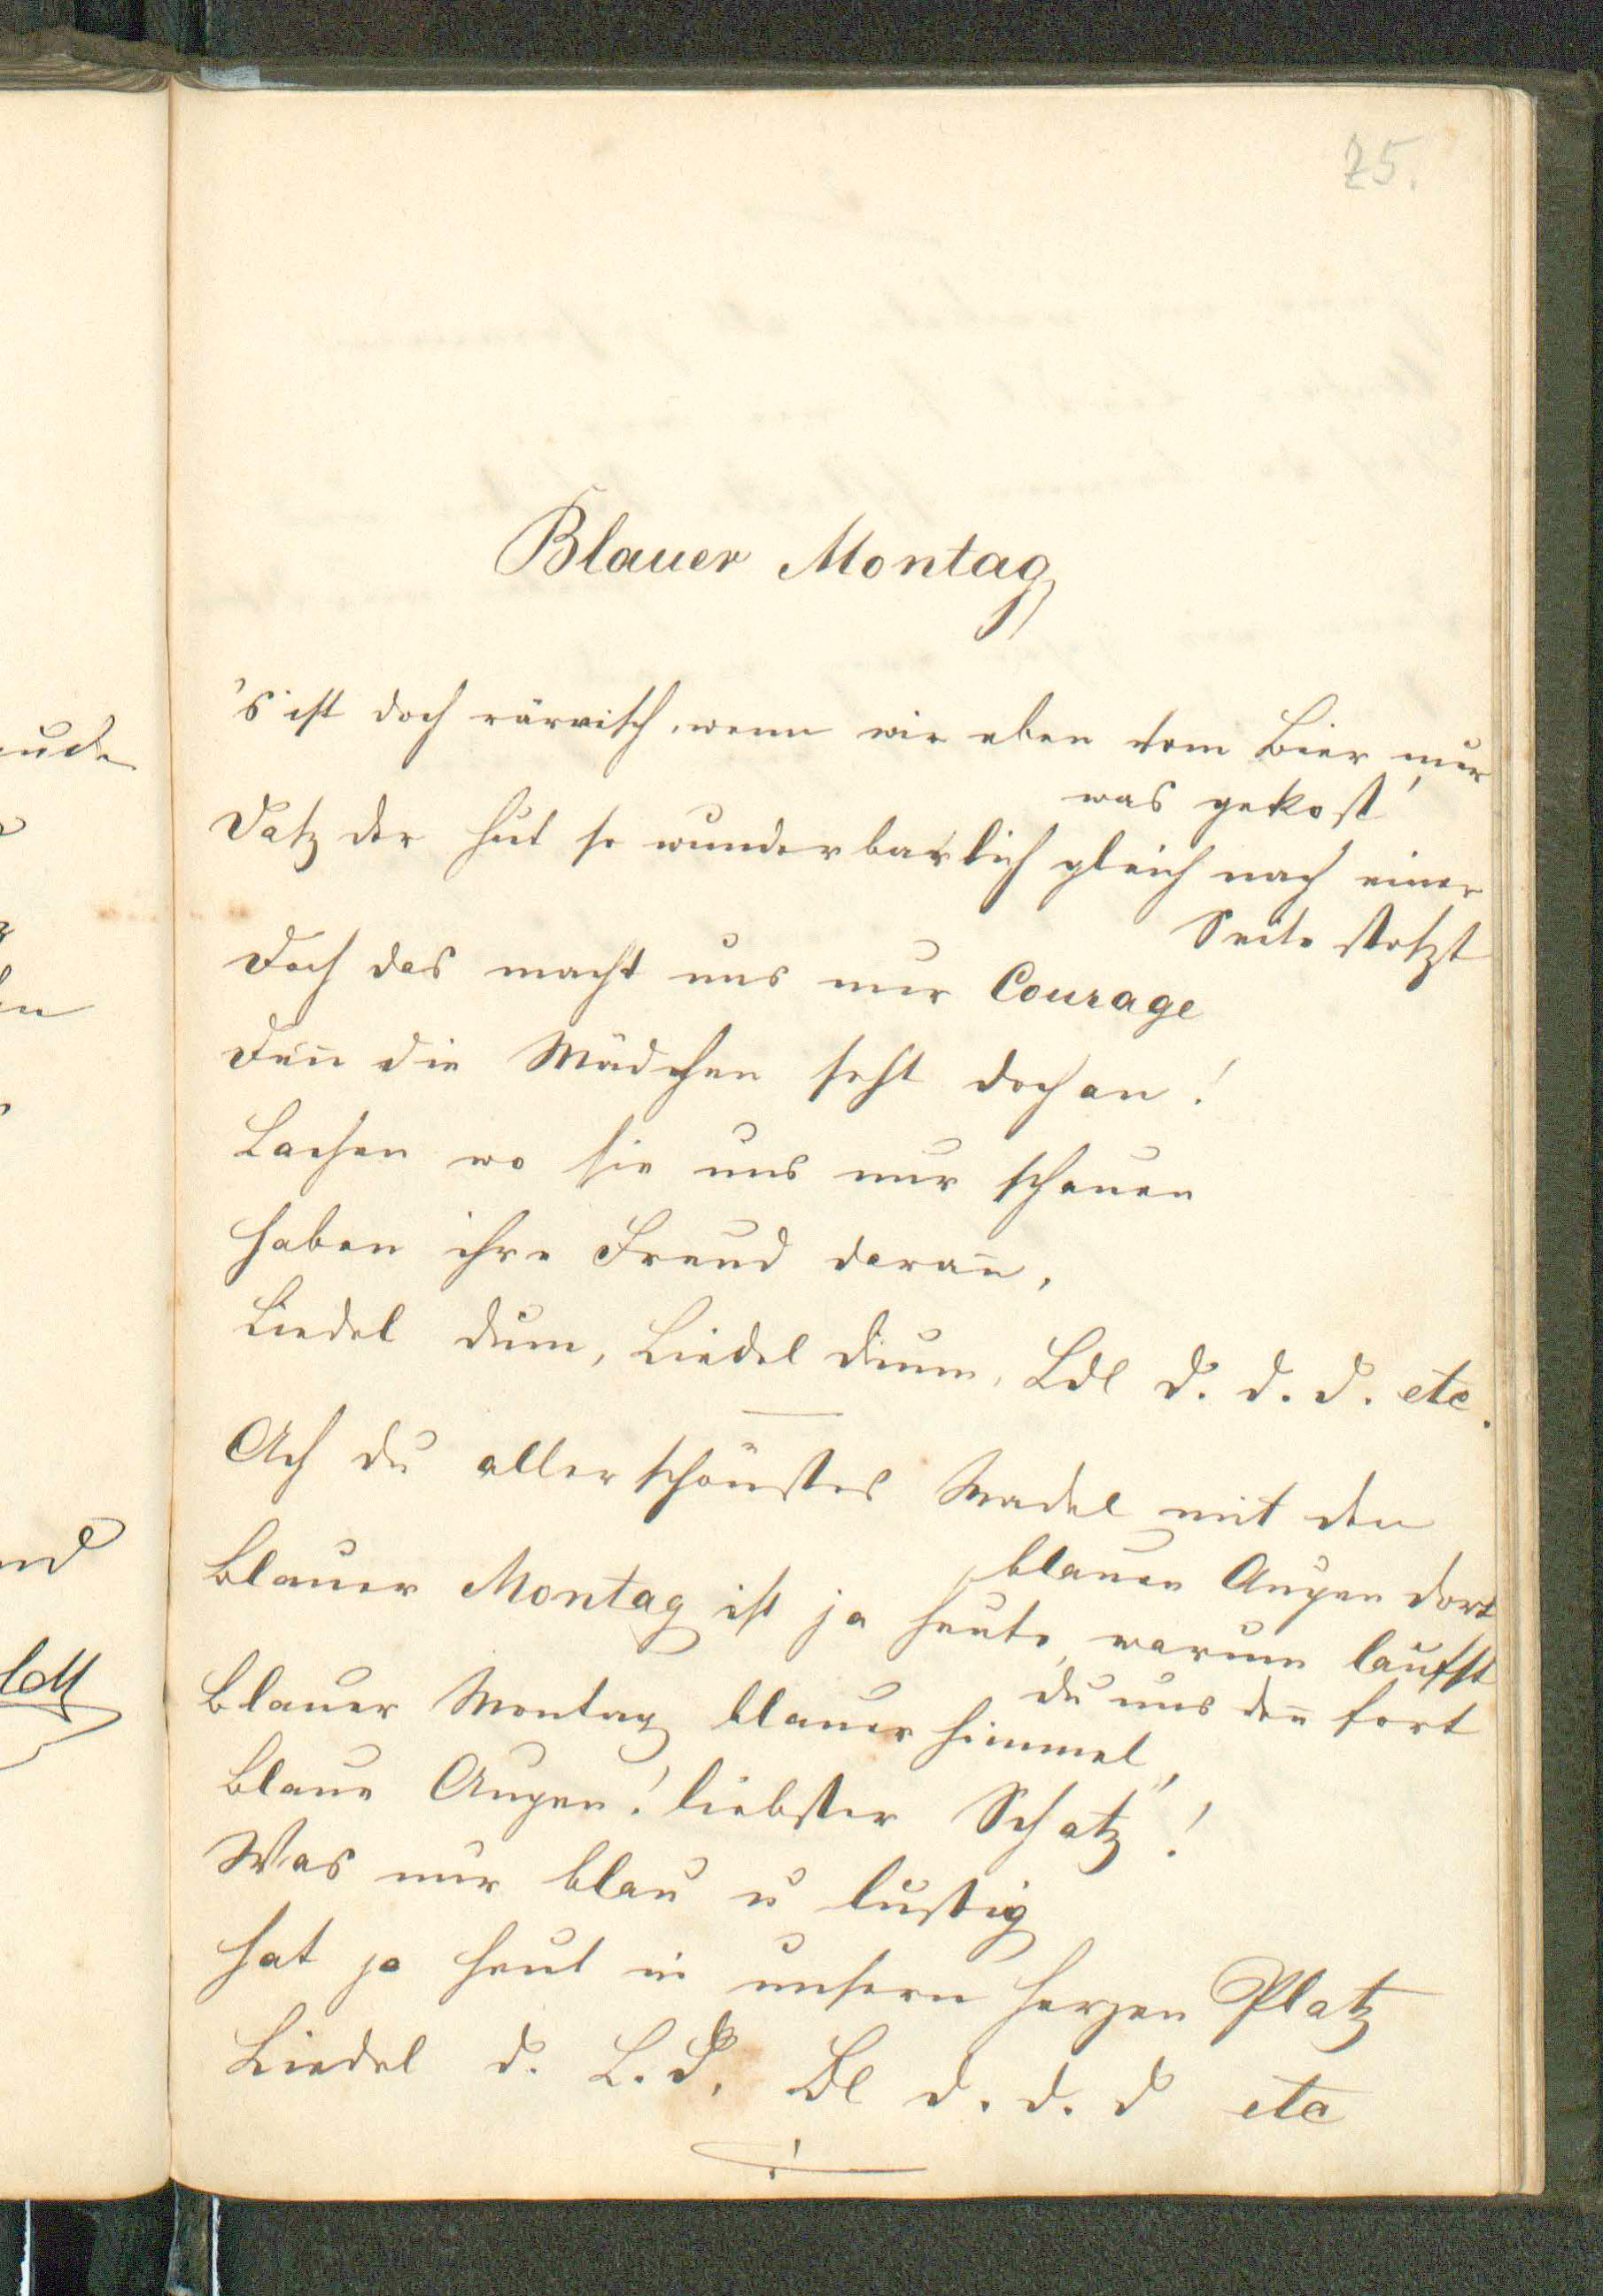 25.
Blauer Montag
's ist doch närrisch, wenn wir eben vom Bier nur
was gekost'
Datz der Hut so wunderbarlich gleich nach einer
Seite stotzt
Doch das macht uns nur Courage
Den̄ die Mädchen seht doch an!
Lachen wo sie uns nur schauen
Haben ihre Freud daran̄,
Liedel dum, Liedel dum, Ldl d. d. d. etc.
Ach du allerschönstes Madel mit den
blauen Augen dort
Blauer Montag ist ja heute, warum läufst
du uns den̄ fort
Blauer Montag blauer Himmel,
Blaue Augen! liebster Schatz!
Was nur blau u lustig
Hat ja heut in unsern Herzen Platz
Liedel d. L. d. Dl d. d. d etc